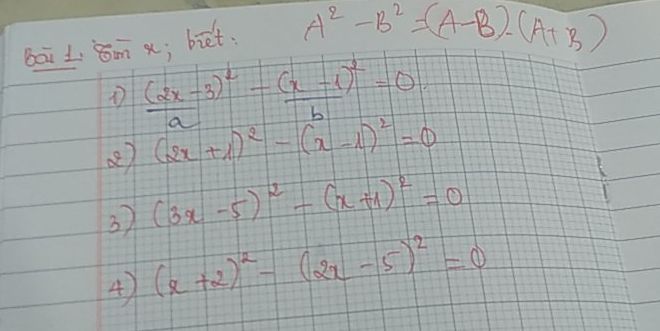 A² - B² = (A - B).(A + B)
Bài 1: Tìm x; biết:
1) (2x - 3)² - (x - 1)² = 0.
a b
2) (2x + 1)² - (x - 1)² = 0
3) (3x - 5)² - (x + 1)² = 0
4) (x + 2)² - (2x - 5)² = 0